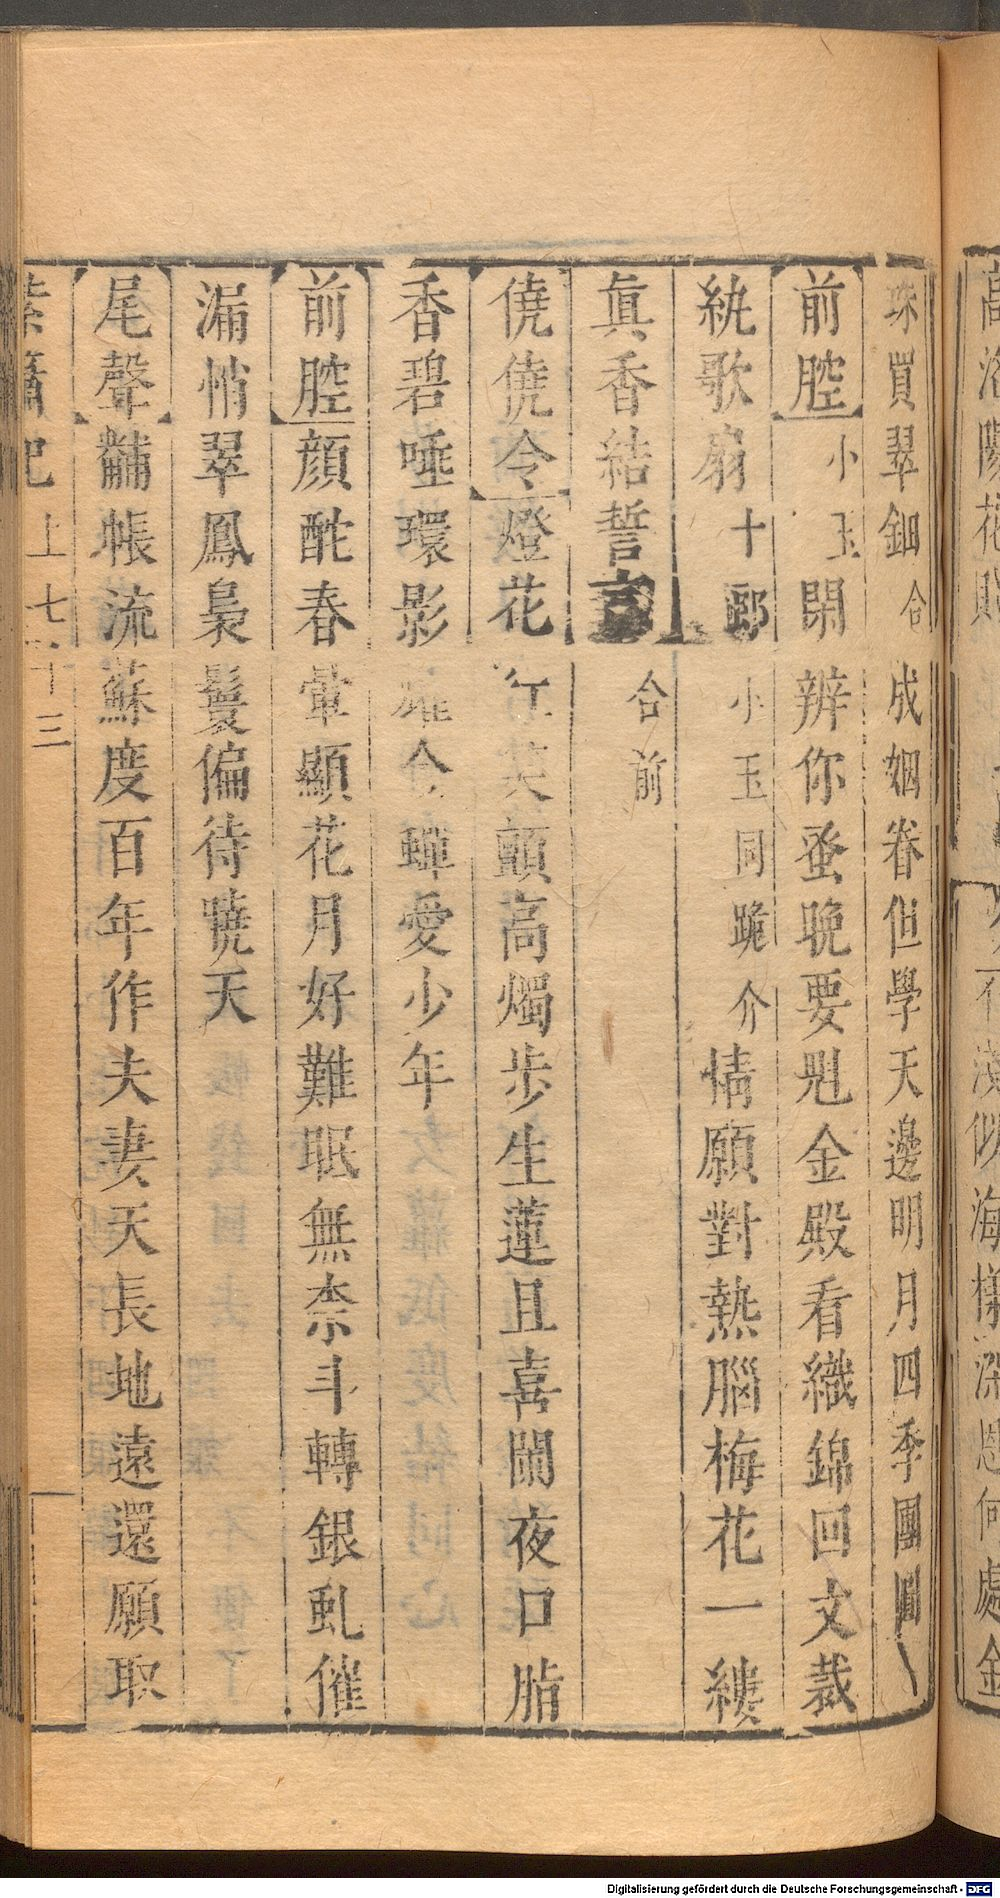 珠買翠鈿合成姻眷但學天邊明月四季團圓
前腔小玉閑辨你蚤晩要䰟金殿看織錦回文裁
紈歌扇十郎小玉同跪介情願對熱腦梅花一縷
眞香結誓言合前
僥僥令燈花紅笑顫高燭步生蓮且喜闌夜口脂
香碧唾環影耀金蟬愛少年
前腔顔酡春暈顯花月好難眠無柰斗轉銀虬催
漏悄翠鳳梟鬟偏待曉天
尾聲黼帳流蘇度百年作夫妻天長地遠還願取
紫簫記上七十三
Digitalisierung gefördert durch die Deutsche Forschungsgemeinschaft - DFG